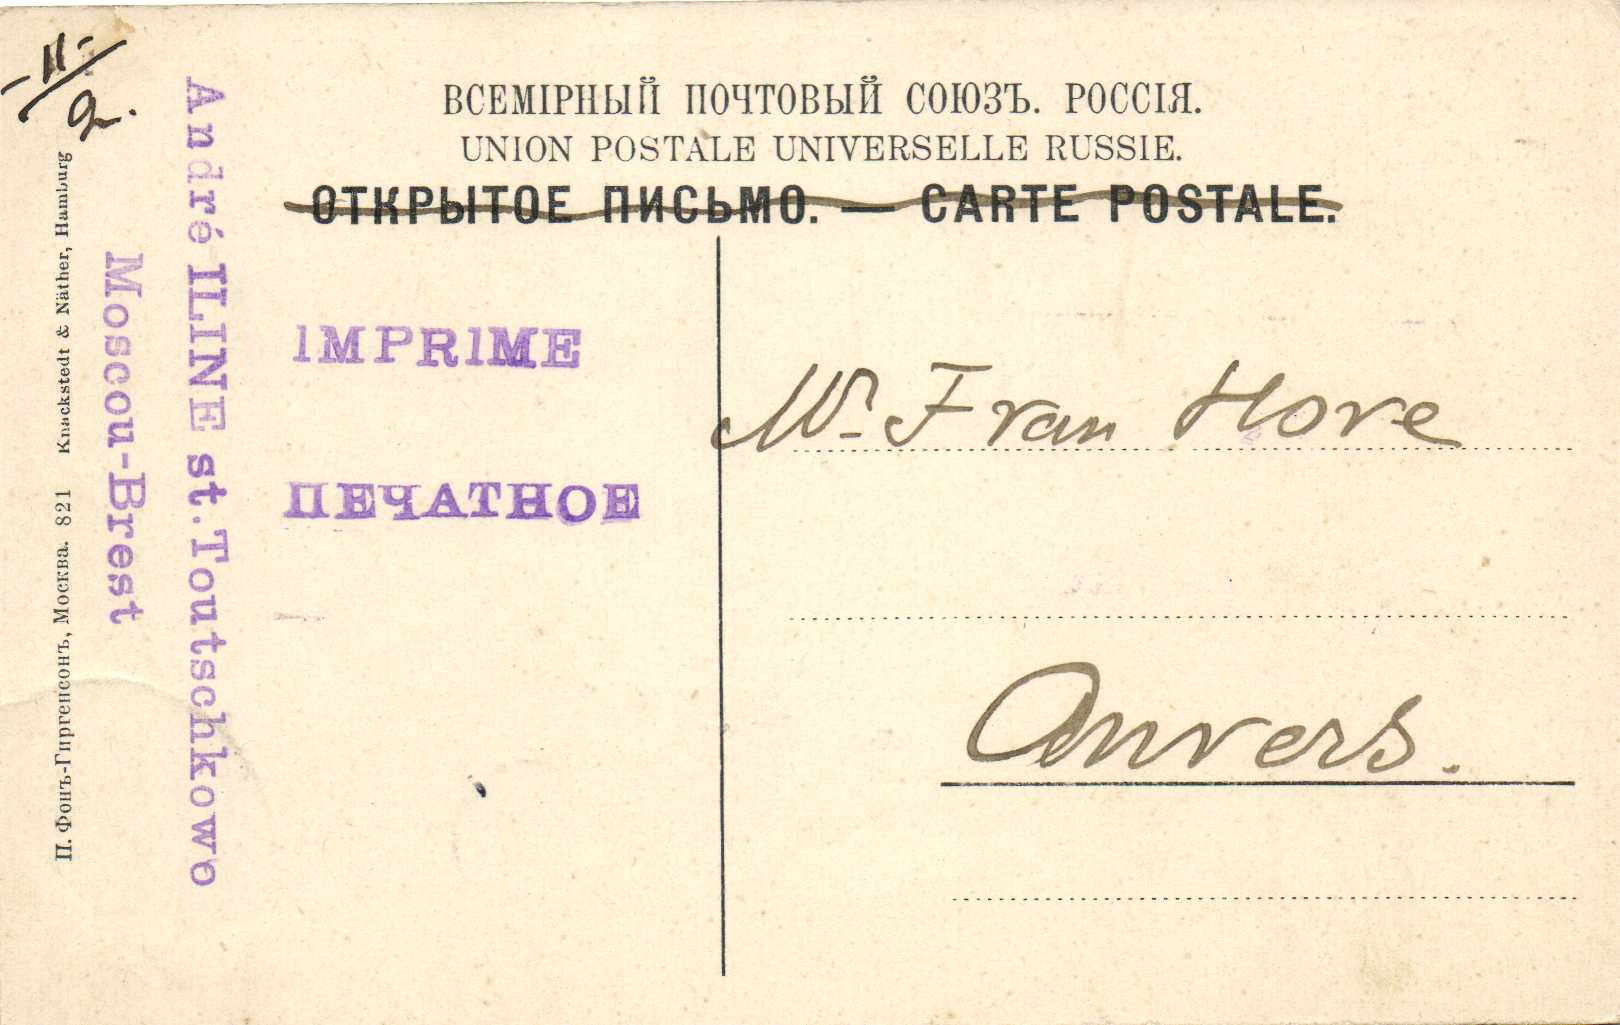 ВСЕМІРНЫЙ ПОЧТОВЫЙ СОЮЗЪ. РОССІЯ.
UNION POSTALE UNIVERSELLE RUSSIE.
ОТКРЫТОЕ ПИСЬМО. — CARTE POSTALE.
II/2.
П. Фонъ-Гиргенсонъ, Москва. 821 Knackstedt & Näther, Hamburg
André ILINE st. Toutschkowo
Moscou-Brest
IMPRIME
ПЕЧАТНОЕ
Mr Fran Hove
Anvers.